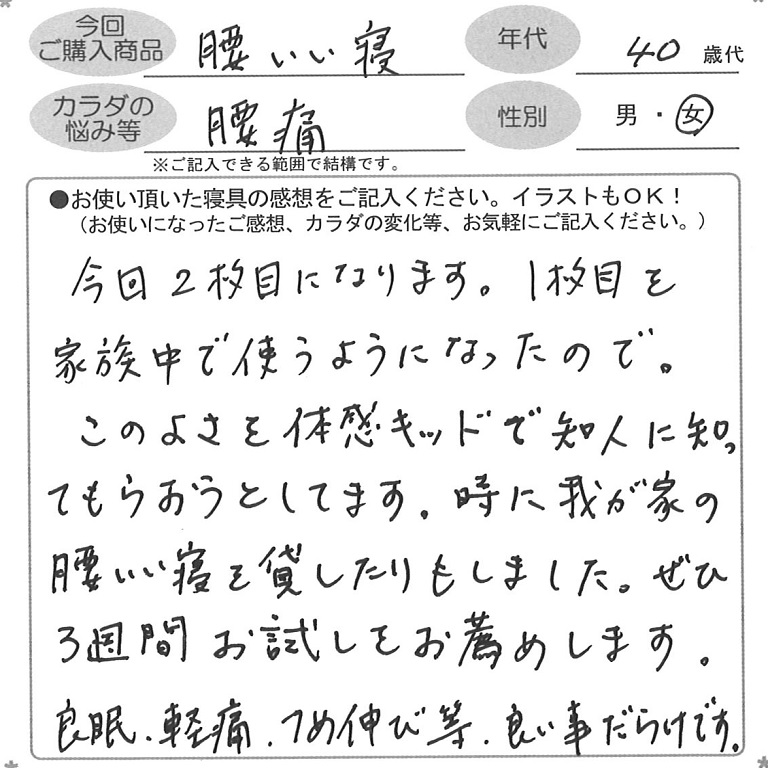 今回
ご購入商品 腰いい寝
年代 40 歳代
カラダの
悩み等 腰痛
性別 男・女
※ご記入できる範囲で結構です。
●お使い頂いた寝具の感想をご記入ください。イラストもOK！
（お使いになったご感想、カラダの変化等、お気軽にご記入ください。）
今回2枚目になります。1枚目を
家族中で使うようになったので。
このよさを体感キッドで知人に知っ
てもらおうとしてます。時に我が家の
腰いい寝を貸したりもしました。ぜひ
3週間お試しをお薦めします。
良眠、軽痛、つめ伸び等、良い事だらけです。